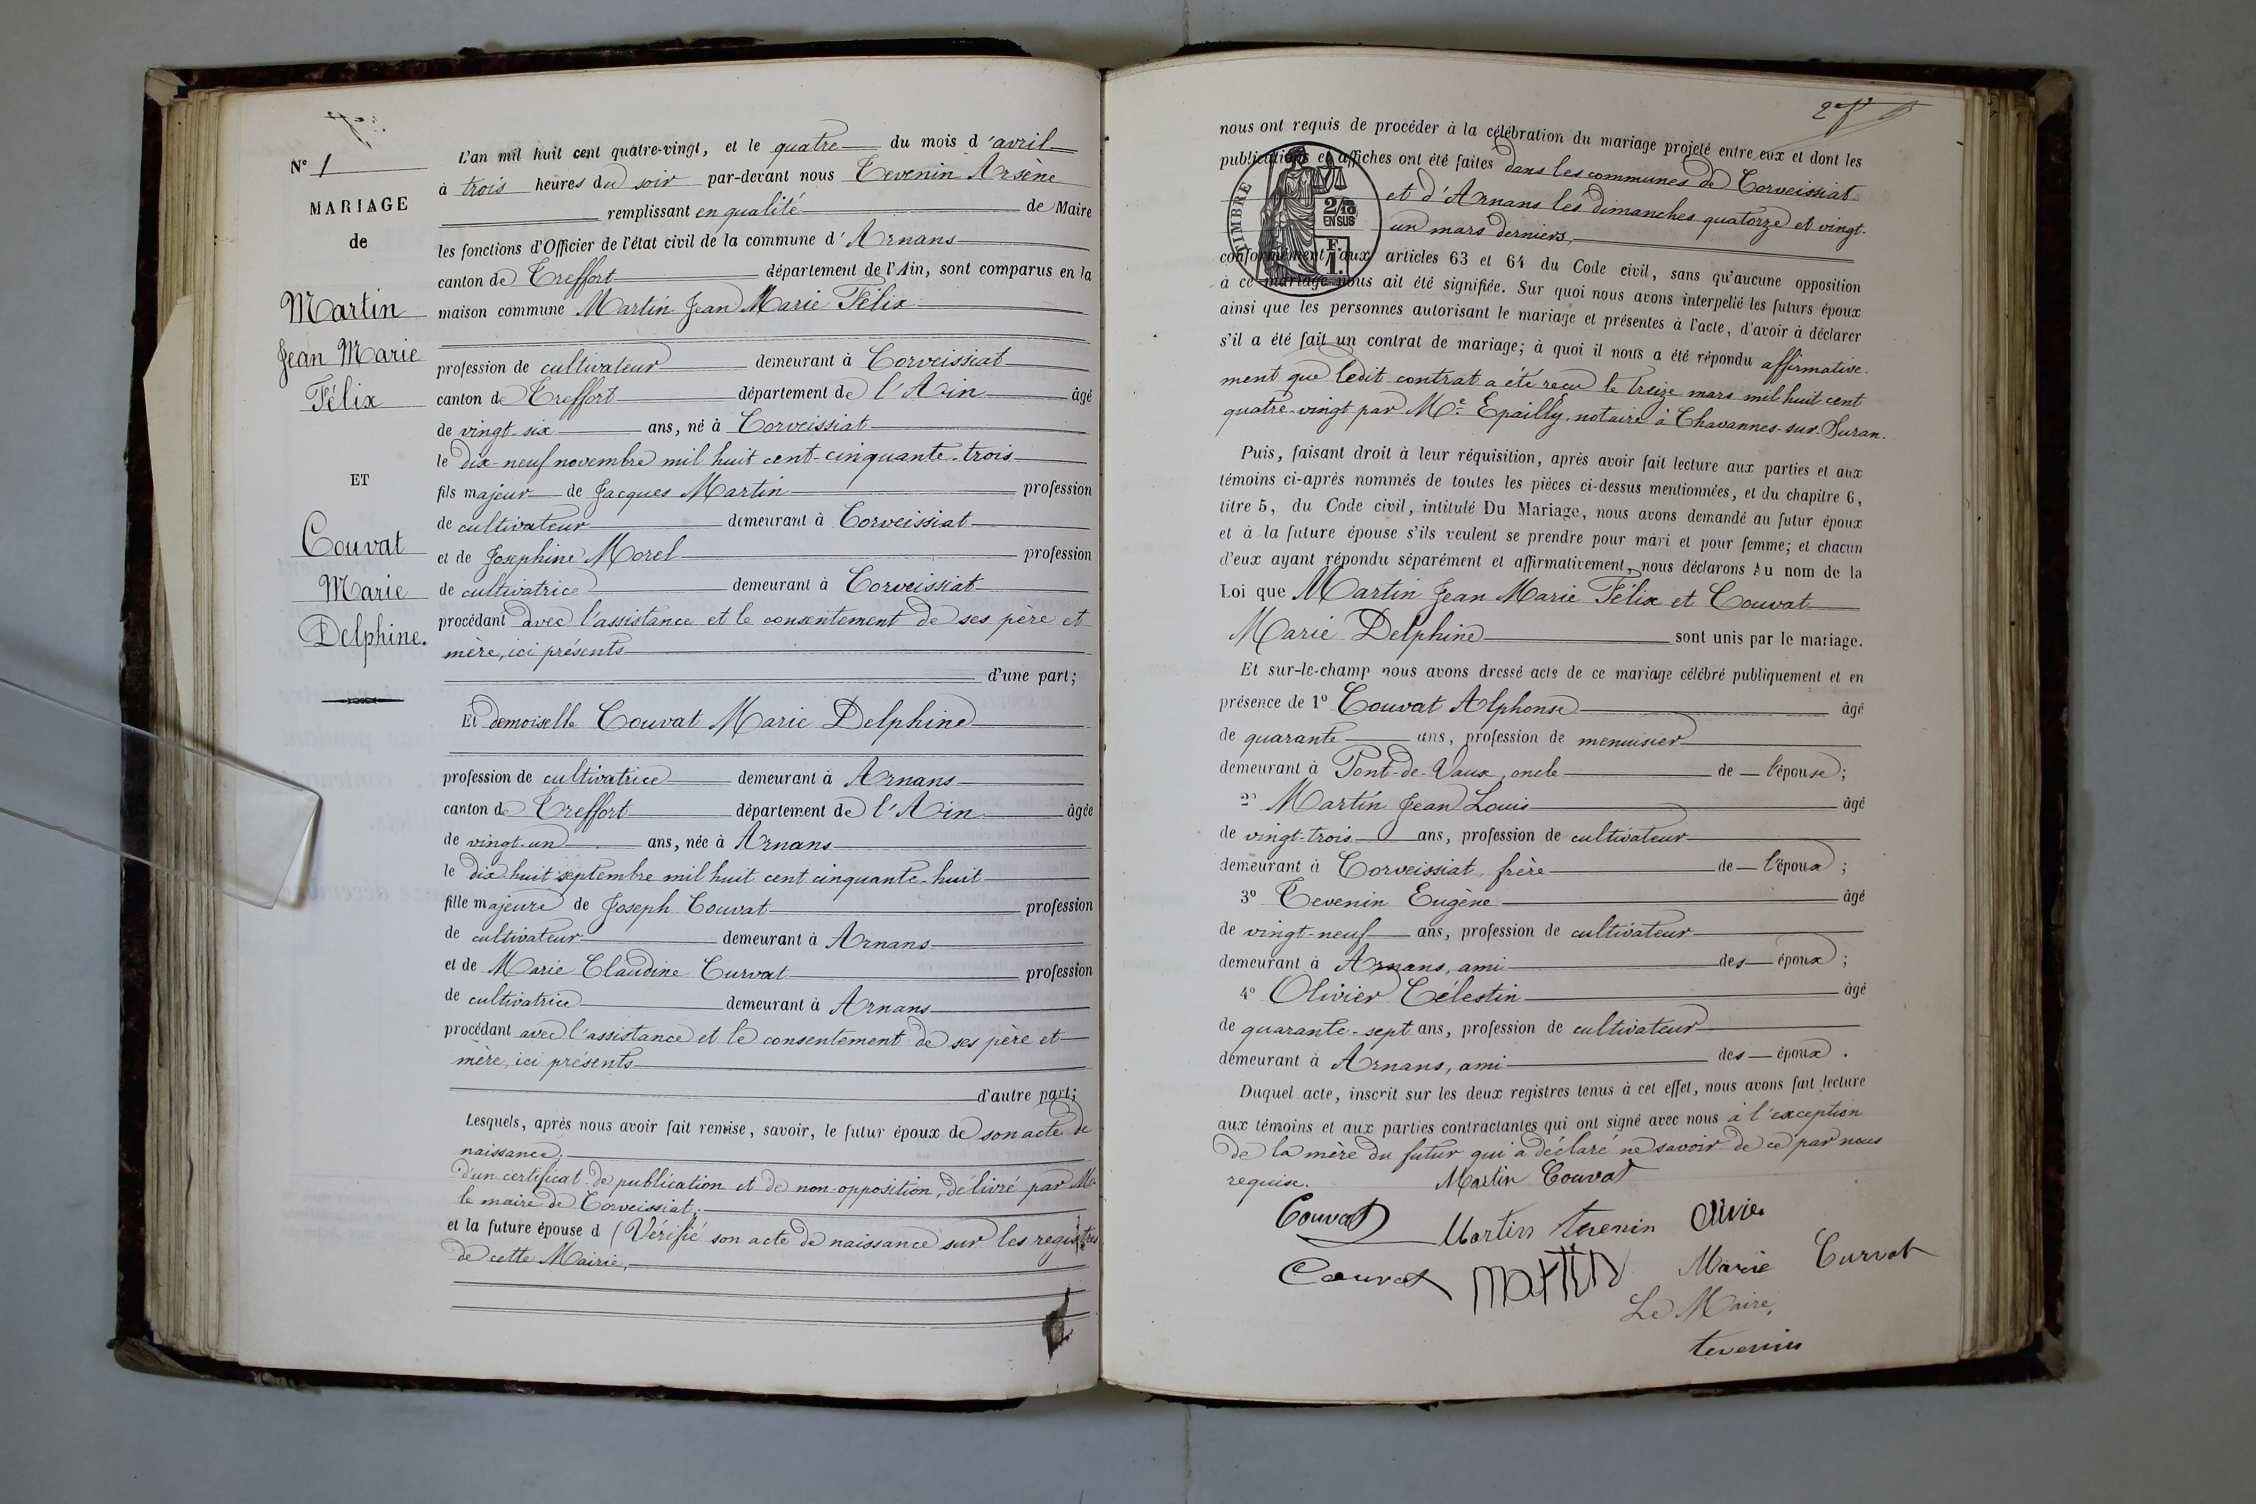 N° 1
MARIAGE
de
Martin
Jean Marie
Félix
ET
Couvat
Marie
Delphine.
L'an mil huit cent quatre-vingt, et le quatre du mois d'avril
à trois heures du soir par-devant nous Tevenin Arsène
remplissant en qualité de Maire
les fonctions d'Officier de l'état civil de la commune d'Arnans
canton de Treffort département de l'Ain, sont comparus en la
maison commune Martin Jean Marie Félix
profession de cultivateur demeurant à Corveissiat
canton de Treffort département de l'Ain âgé
de vingt-six ans, né à Corveissiat
le dix-neuf novembre mil huit cent-cinquante-trois
fils majeur de Jacques Martin profession
de cultivateur demeurant à Corveissiat
et de Josephine Morel profession
de cultivatrice demeurant à Corveissiat
procédant avec l'assistance et le consentement de ses père et
mère, ici présents
d'une part;
Et demoiselle Couvat Marie Delphine
profession de cultivatrice demeurant à Arnans
canton de Treffort département de l'Ain âgée
de vingt-un ans, née à Arnans
le dix-huit septembre mil huit cent cinquante-huit
fille majeure de Joseph Couvat profession
de cultivateur demeurant à Arnans
et de Marie Claudine Curvat profession
de cultivatrice demeurant à Arnans
procédant avec l'assistance et le consentement de ses père et
mère, ici présents
d'autre part;
Lesquels, après nous avoir fait remise, savoir, le futur époux de son acte de
naissance;
d'un certificat de publication et de non-opposition, délivré par Mr
le maire de Corveissiat;
et la future épouse d (Vérifié son acte de naissance sur les registres
de cette Mairie,
2e f
nous ont requis de procéder à la célébration du mariage projeté entre eux et dont les
publications et affiches ont été faites dans les communes de Corveissiat
et d'Arnans les dimanches quatorze et vingt-
un mars derniers,
TIMBRE
2/10
EN SUS
F.
1.
conformément aux articles 63 et 64 du Code civil, sans qu'aucune opposition
à ce mariage nous ait été signifiée. Sur quoi nous avons interpelié les futurs époux
ainsi que les personnes autorisant le mariage et présentes à l'acte, d'avoir à déclarer
s'il a été fait un contrat de mariage; à quoi il nous a été répondu affirmative-
ment que ledit contrat a été reçu le treize mars mil huit cent
quatre-vingt par Me Epailly, notaire à Chavannes-sur-Suran.
Puis, faisant droit à leur réquisition, après avoir fait lecture aux parties et aux
témoins ci-après nommés de toutes les pièces ci-dessus mentionnées, et du chapitre 6,
titre 5, du Code civil, intitulé Du Mariage, nous avons demandé au futur époux
et à la future épouse s'ils veulent se prendre pour mari et pour femme; et chacun
d'eux ayant répondu séparément et affirmativement, nous déclarons Au nom de la
Loi que Martin Jean Marie Félix et Couvat
Marie Delphine sont unis par le mariage.
Et sur-le-champ nous avons dressé acte de ce mariage célébré publiquement et en
présence de 1° Couvat Alphonse âgé
de quarante ans, profession de menuisier
demeurant à Pont-de-Vaux, oncle de l'épouse;
2° Martin Jean Louis âgé
de vingt-trois ans, profession de cultivateur
demeurant à Corveissiat, frère de l'époux;
3° Tevenin Eugène âgé
de vingt-neuf ans, profession de cultivateur
demeurant à Arnans, ami des époux;
4° Olivier Célestin âgé
de quarante-sept ans, profession de cultivateur
demeurant à Arnans, ami des époux.
Duquel acte, inscrit sur les deux registres tenus à cet effet, nous avons fait lecture
aux témoins et aux parties contractantes qui ont signé avec nous à l'exception
de la mère du futur qui a déclaré ne savoir de ce par nous
requise.
Martin Couvat
Couvat Martin tevenin Olivier
Couvat Martin Marie Curvat
Le Maire,
tevenin